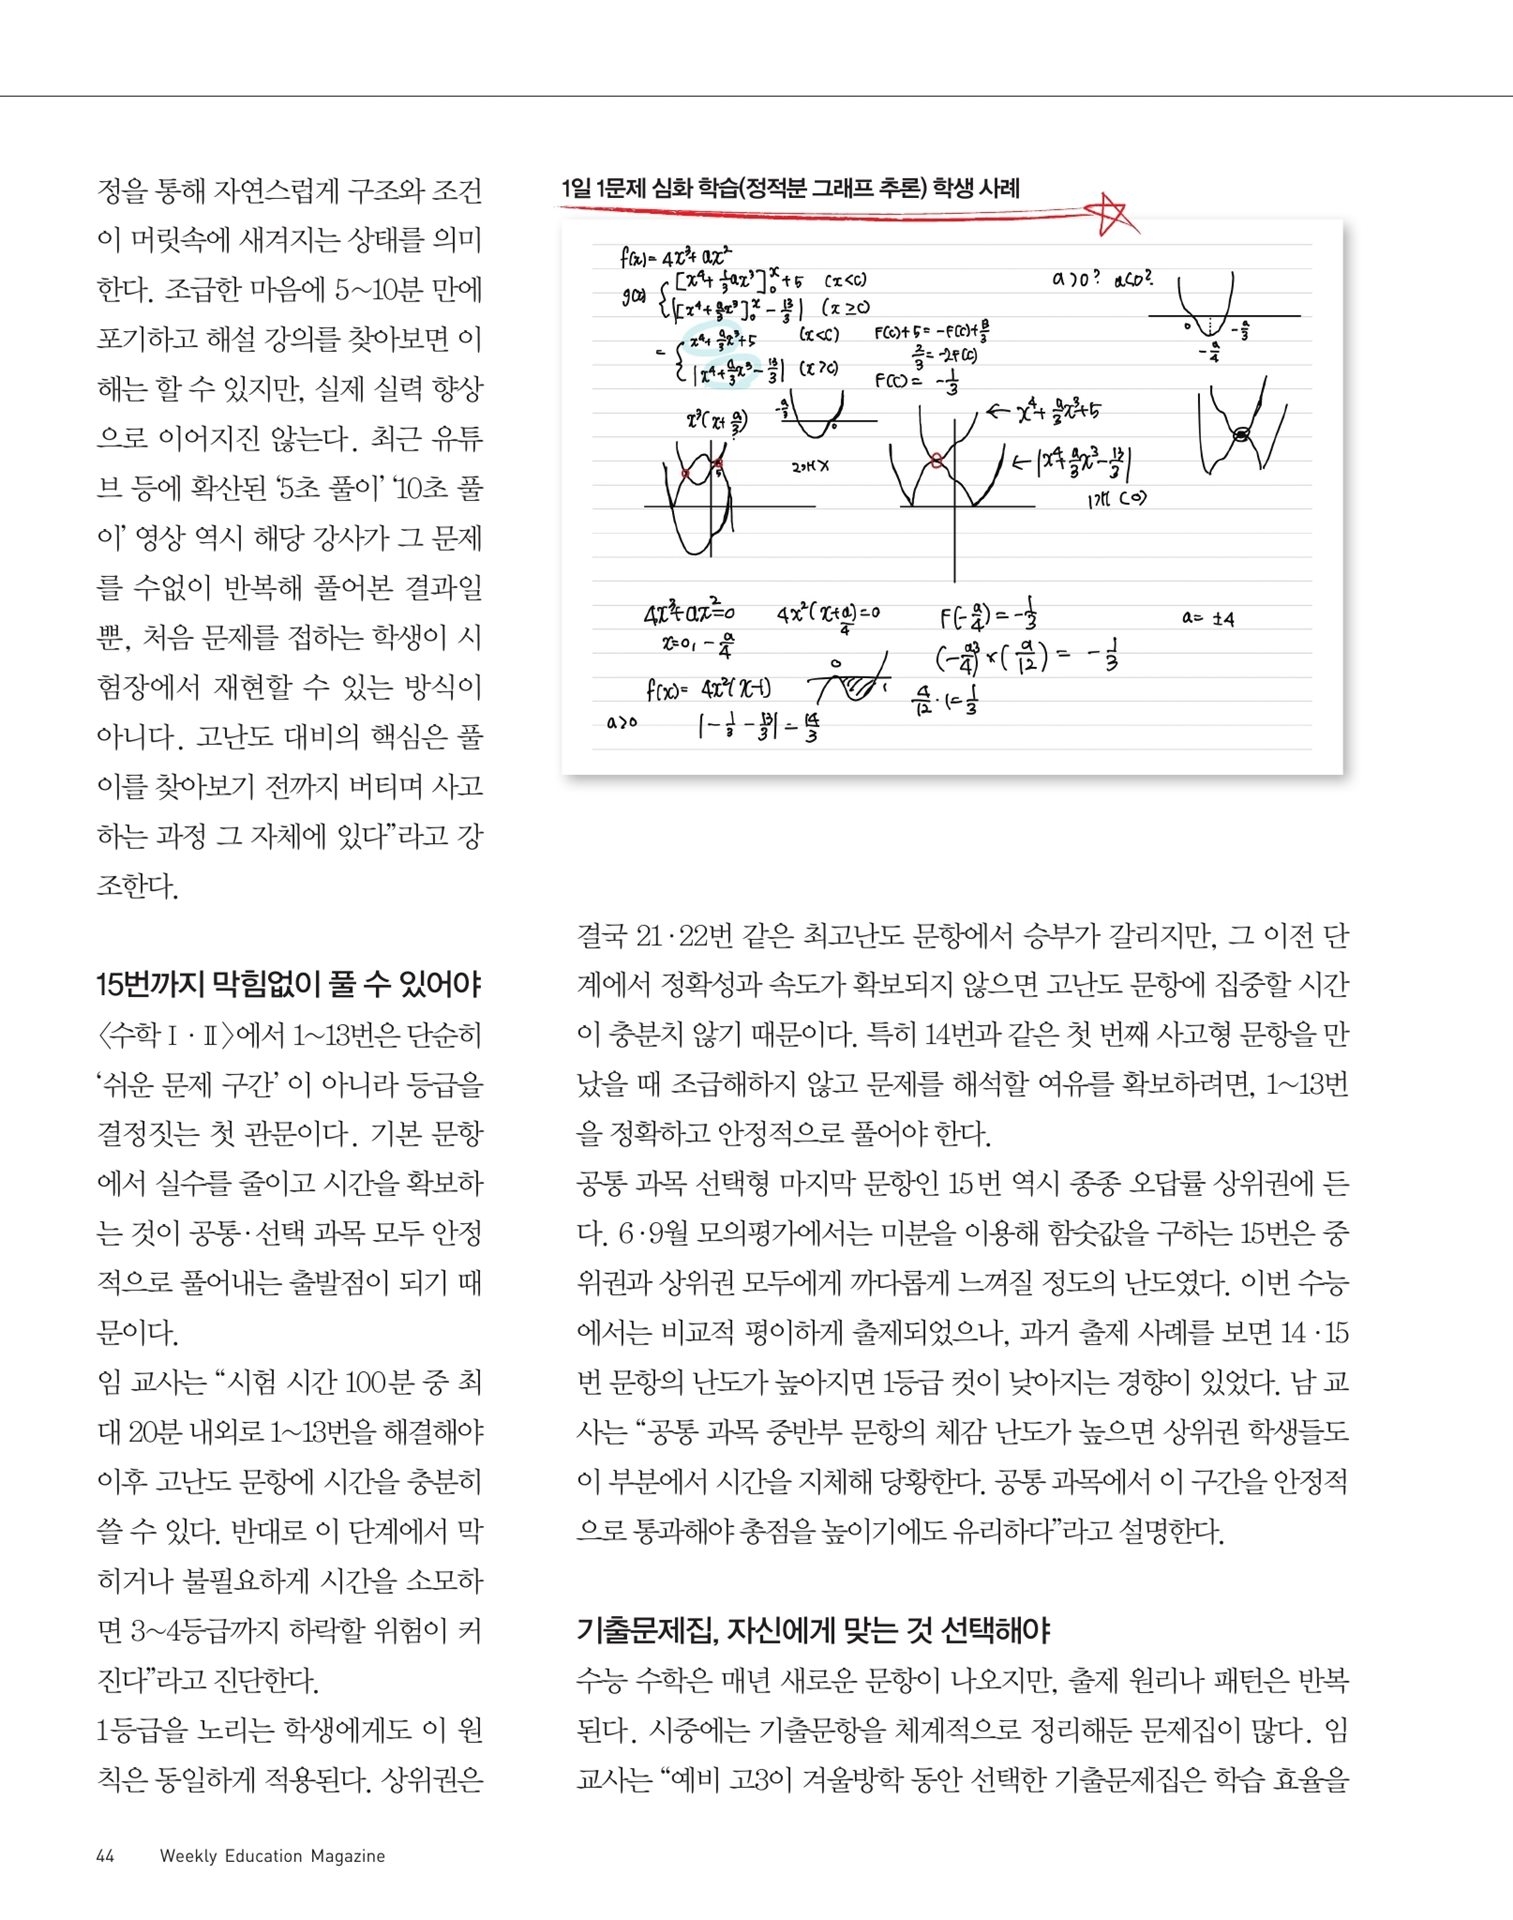 정을 통해 자연스럽게 구조와 조건
이 머릿속에 새겨지는 상태를 의미
한다. 조급한 마음에 5~10분 만에
포기하고 해설 강의를 찾아보면 이
해는 할 수 있지만, 실제 실력 향상
으로 이어지진 않는다. 최근 유튜
브 등에 확산된 ‘5초 풀이’ ‘10초 풀
이’ 영상 역시 해당 강사가 그 문제
를 수없이 반복해 풀어본 결과일
뿐, 처음 문제를 접하는 학생이 시
험장에서 재현할 수 있는 방식이
아니다. 고난도 대비의 핵심은 풀
이를 찾아보기 전까지 버티며 사고
하는 과정 그 자체에 있다”라고 강
조한다.
15번까지 막힘없이 풀 수 있어야
〈수학Ⅰ·Ⅱ〉에서 1~13번은 단순히
‘쉬운 문제 구간’ 이 아니라 등급을
결정짓는 첫 관문이다. 기본 문항
에서 실수를 줄이고 시간을 확보하
는 것이 공통·선택 과목 모두 안정
적으로 풀어내는 출발점이 되기 때
문이다.
임 교사는 “시험 시간 100분 중 최
대 20분 내외로 1~13번을 해결해야
이후 고난도 문항에 시간을 충분히
쓸 수 있다. 반대로 이 단계에서 막
히거나 불필요하게 시간을 소모하
면 3~4등급까지 하락할 위험이 커
진다”라고 진단한다.
1등급을 노리는 학생에게도 이 원
칙은 동일하게 적용된다. 상위권은
1일 1문제 심화 학습(정적분 그래프 추론) 학생 사례
f(x)= 4x³+ax²
g(x) { [x⁴+⅓ax³]₀ˣ+5 (x<c)
|[x⁴+a/3x³]₀ˣ - 13/3| (x≥c)
= { x⁴+a/3x³+5 (x<c)
|x⁴+a/3x³-13/3| (x>c)
F(c)+5 = -F(c)+13/3
2/3 = -2F(c)
F(c) = -1/3
a>0? a<0?
0 -a/4 -a/3
x³(x+a/3)
-a/3 0
2개 X
5
← x⁴+a/3x³+5
← |x⁴+a/3x³-13/3|
1개 (O)
4x³+ax²=0
x=0, -a/4
4x²(x+a/4)=0
F(-a/4) = -1/3
a= ±4
(-a³/4)×(a/12) = -1/3
f(x)= 4x²(x-1)
0 1
4/12·1=1/3
a>0
|-1/3-13/3| = 14/3
결국 21·22번 같은 최고난도 문항에서 승부가 갈리지만, 그 이전 단
계에서 정확성과 속도가 확보되지 않으면 고난도 문항에 집중할 시간
이 충분치 않기 때문이다. 특히 14번과 같은 첫 번째 사고형 문항을 만
났을 때 조급해하지 않고 문제를 해석할 여유를 확보하려면, 1~13번
을 정확하고 안정적으로 풀어야 한다.
공통 과목 선택형 마지막 문항인 15번 역시 종종 오답률 상위권에 든
다. 6·9월 모의평가에서는 미분을 이용해 함숫값을 구하는 15번은 중
위권과 상위권 모두에게 까다롭게 느껴질 정도의 난도였다. 이번 수능
에서는 비교적 평이하게 출제되었으나, 과거 출제 사례를 보면 14·15
번 문항의 난도가 높아지면 1등급 컷이 낮아지는 경향이 있었다. 남 교
사는 “공통 과목 중반부 문항의 체감 난도가 높으면 상위권 학생들도
이 부분에서 시간을 지체해 당황한다. 공통 과목에서 이 구간을 안정적
으로 통과해야 총점을 높이기에도 유리하다”라고 설명한다.
기출문제집, 자신에게 맞는 것 선택해야
수능 수학은 매년 새로운 문항이 나오지만, 출제 원리나 패턴은 반복
된다. 시중에는 기출문항을 체계적으로 정리해둔 문제집이 많다. 임
교사는 “예비 고3이 겨울방학 동안 선택한 기출문제집은 학습 효율을
44 Weekly Education Magazine